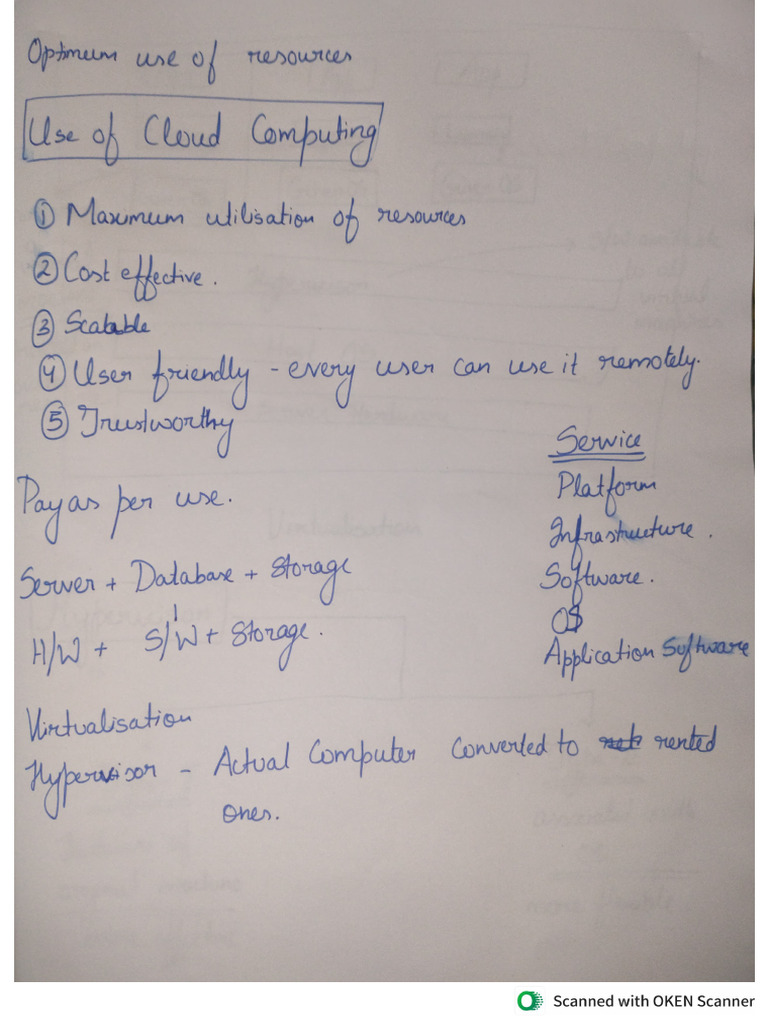 Optimum use of resources
Use of Cloud Computing
① Maximum utilisation of resources
② Cost effective.
③ Scalable
④ User friendly - every user can use it remotely.
⑤ Trustworthy
Pay as per use.
Server + Database + Storage
H/W + S/W + Storage.
Service
Platform
Infrastructure.
Software.
OS
Application Software
Virtualisation
Hypervisor - Actual Computer converted to rented
ones.
Scanned with OKEN Scanner